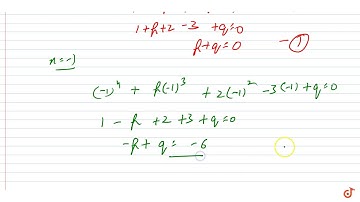 1+p+2-3+q=0
p+q=0 -①
x=-1
(-1)⁴ + p(-1)³ + 2(-1)² -3(-1)+q=0
1 - p +2+3+q=0
-p+q = -6